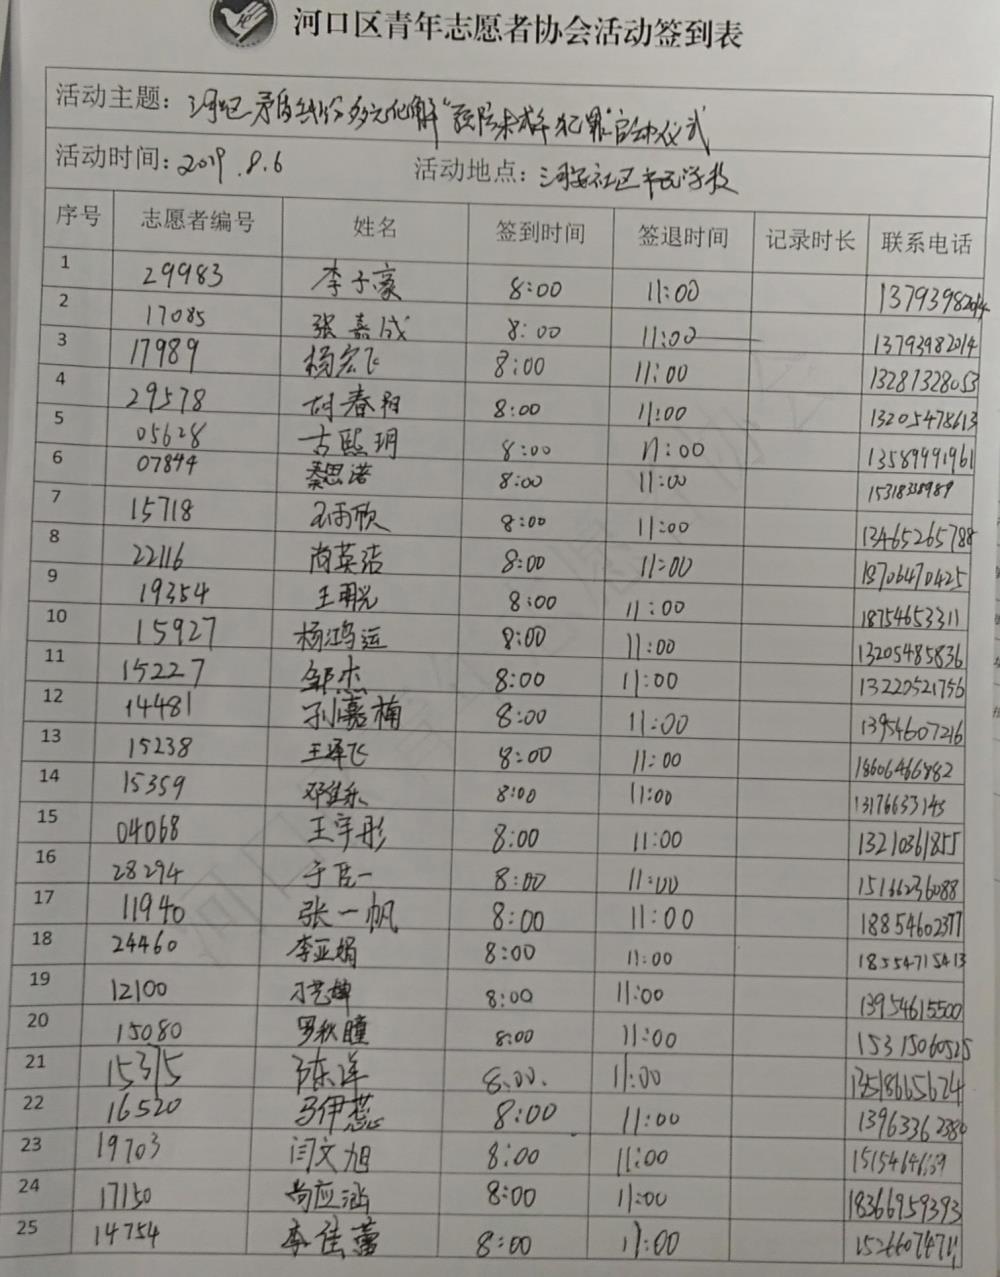 河口区青年志愿者协会活动签到表
活动主题：河口区矛盾纠纷多元化解"预防未成年犯罪"启动仪式
活动时间：2019.8.6 活动地点：河安社区市民学校
序号 志愿者编号 姓名 签到时间 签退时间 记录时长 联系电话
1 29983 李子豪 8:00 11:00 13793982014
2 17085 张嘉成 8:00 11:00 13793982014
3 17989 杨宏飞 8:00 11:00 13281328053
4 29578 胡春阳 8:00 11:00 13205478613
5 05628 古熙玥 8:00 11:00 13589991961
6 07844 秦思诺 8:00 11:00 15318338989
7 15718 8:00 11:00 13465265788
8 22116 尚英洁 8:00 11:00 18706470425
9 19354 王明光 8:00 11:00 18754653311
10 15927 杨鸿运 8:00 11:00 13205485836
11 15227 邹杰 8:00 11:00 13220521756
12 14481 孙嘉楠 8:00 11:00 13954607216
13 15238 王泽飞 8:00 11:00 18606466882
14 15359 邓佳乐 8:00 11:00
15 04068 王宇彤 8:00 11:00 13210361855
16 28294 于臣一 8:00 11:00 15166236088
17 11940 张一帆 8:00 11:00 18854602377
18 24460 李亚娟 8:00 11:00 18554715413
19 12100 8:00 11:00 13954615500
20 15080 罗秋瞳 8:00 11:00 15315060525
21 15375 陈洋 8:00 11:00 13518665674
22 16520 马伊蕊 8:00 11:00 13963362380
23 19703 闫文旭 8:00 11:00
24 17150 尚应涵 8:00 11:00 18366959393
25 14754 李佳蕾 8:00 11:00 15266074711